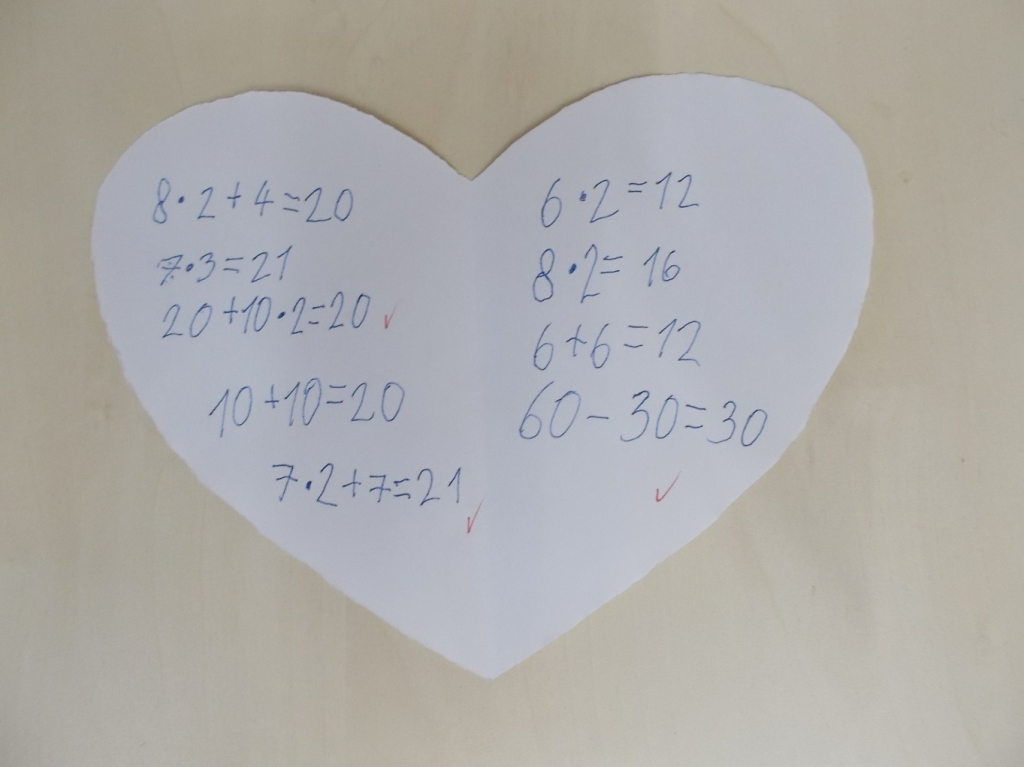 8·2+4=20
7·3=21
20+10·2=20
10+10=20
7·2+7=21
6·2=12
8·2=16
6+6=12
60-30=30